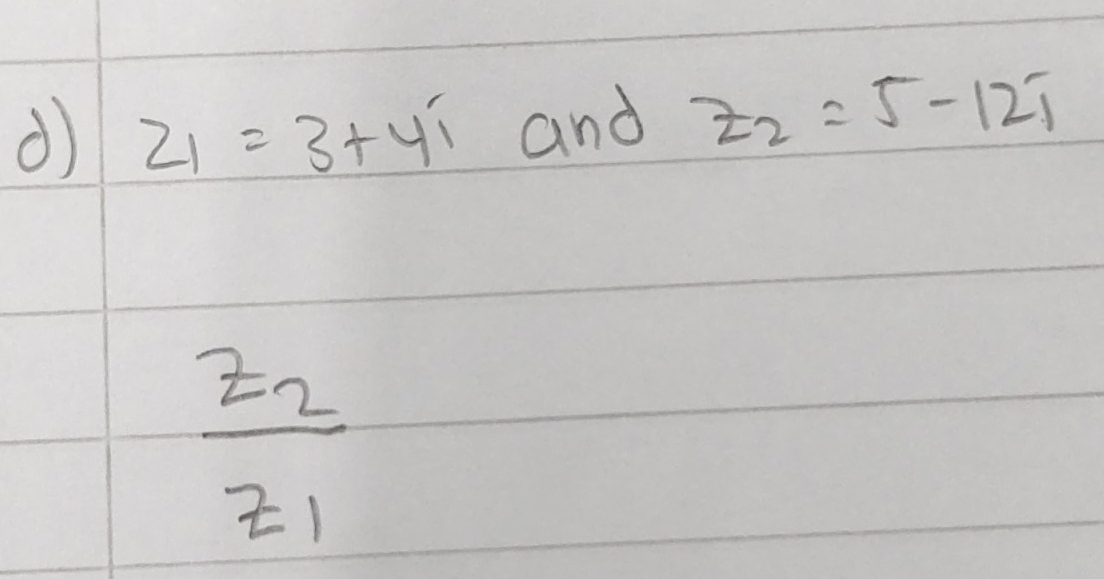 d) z1 = 3+4i and z2 = 5-12i
z2
z1